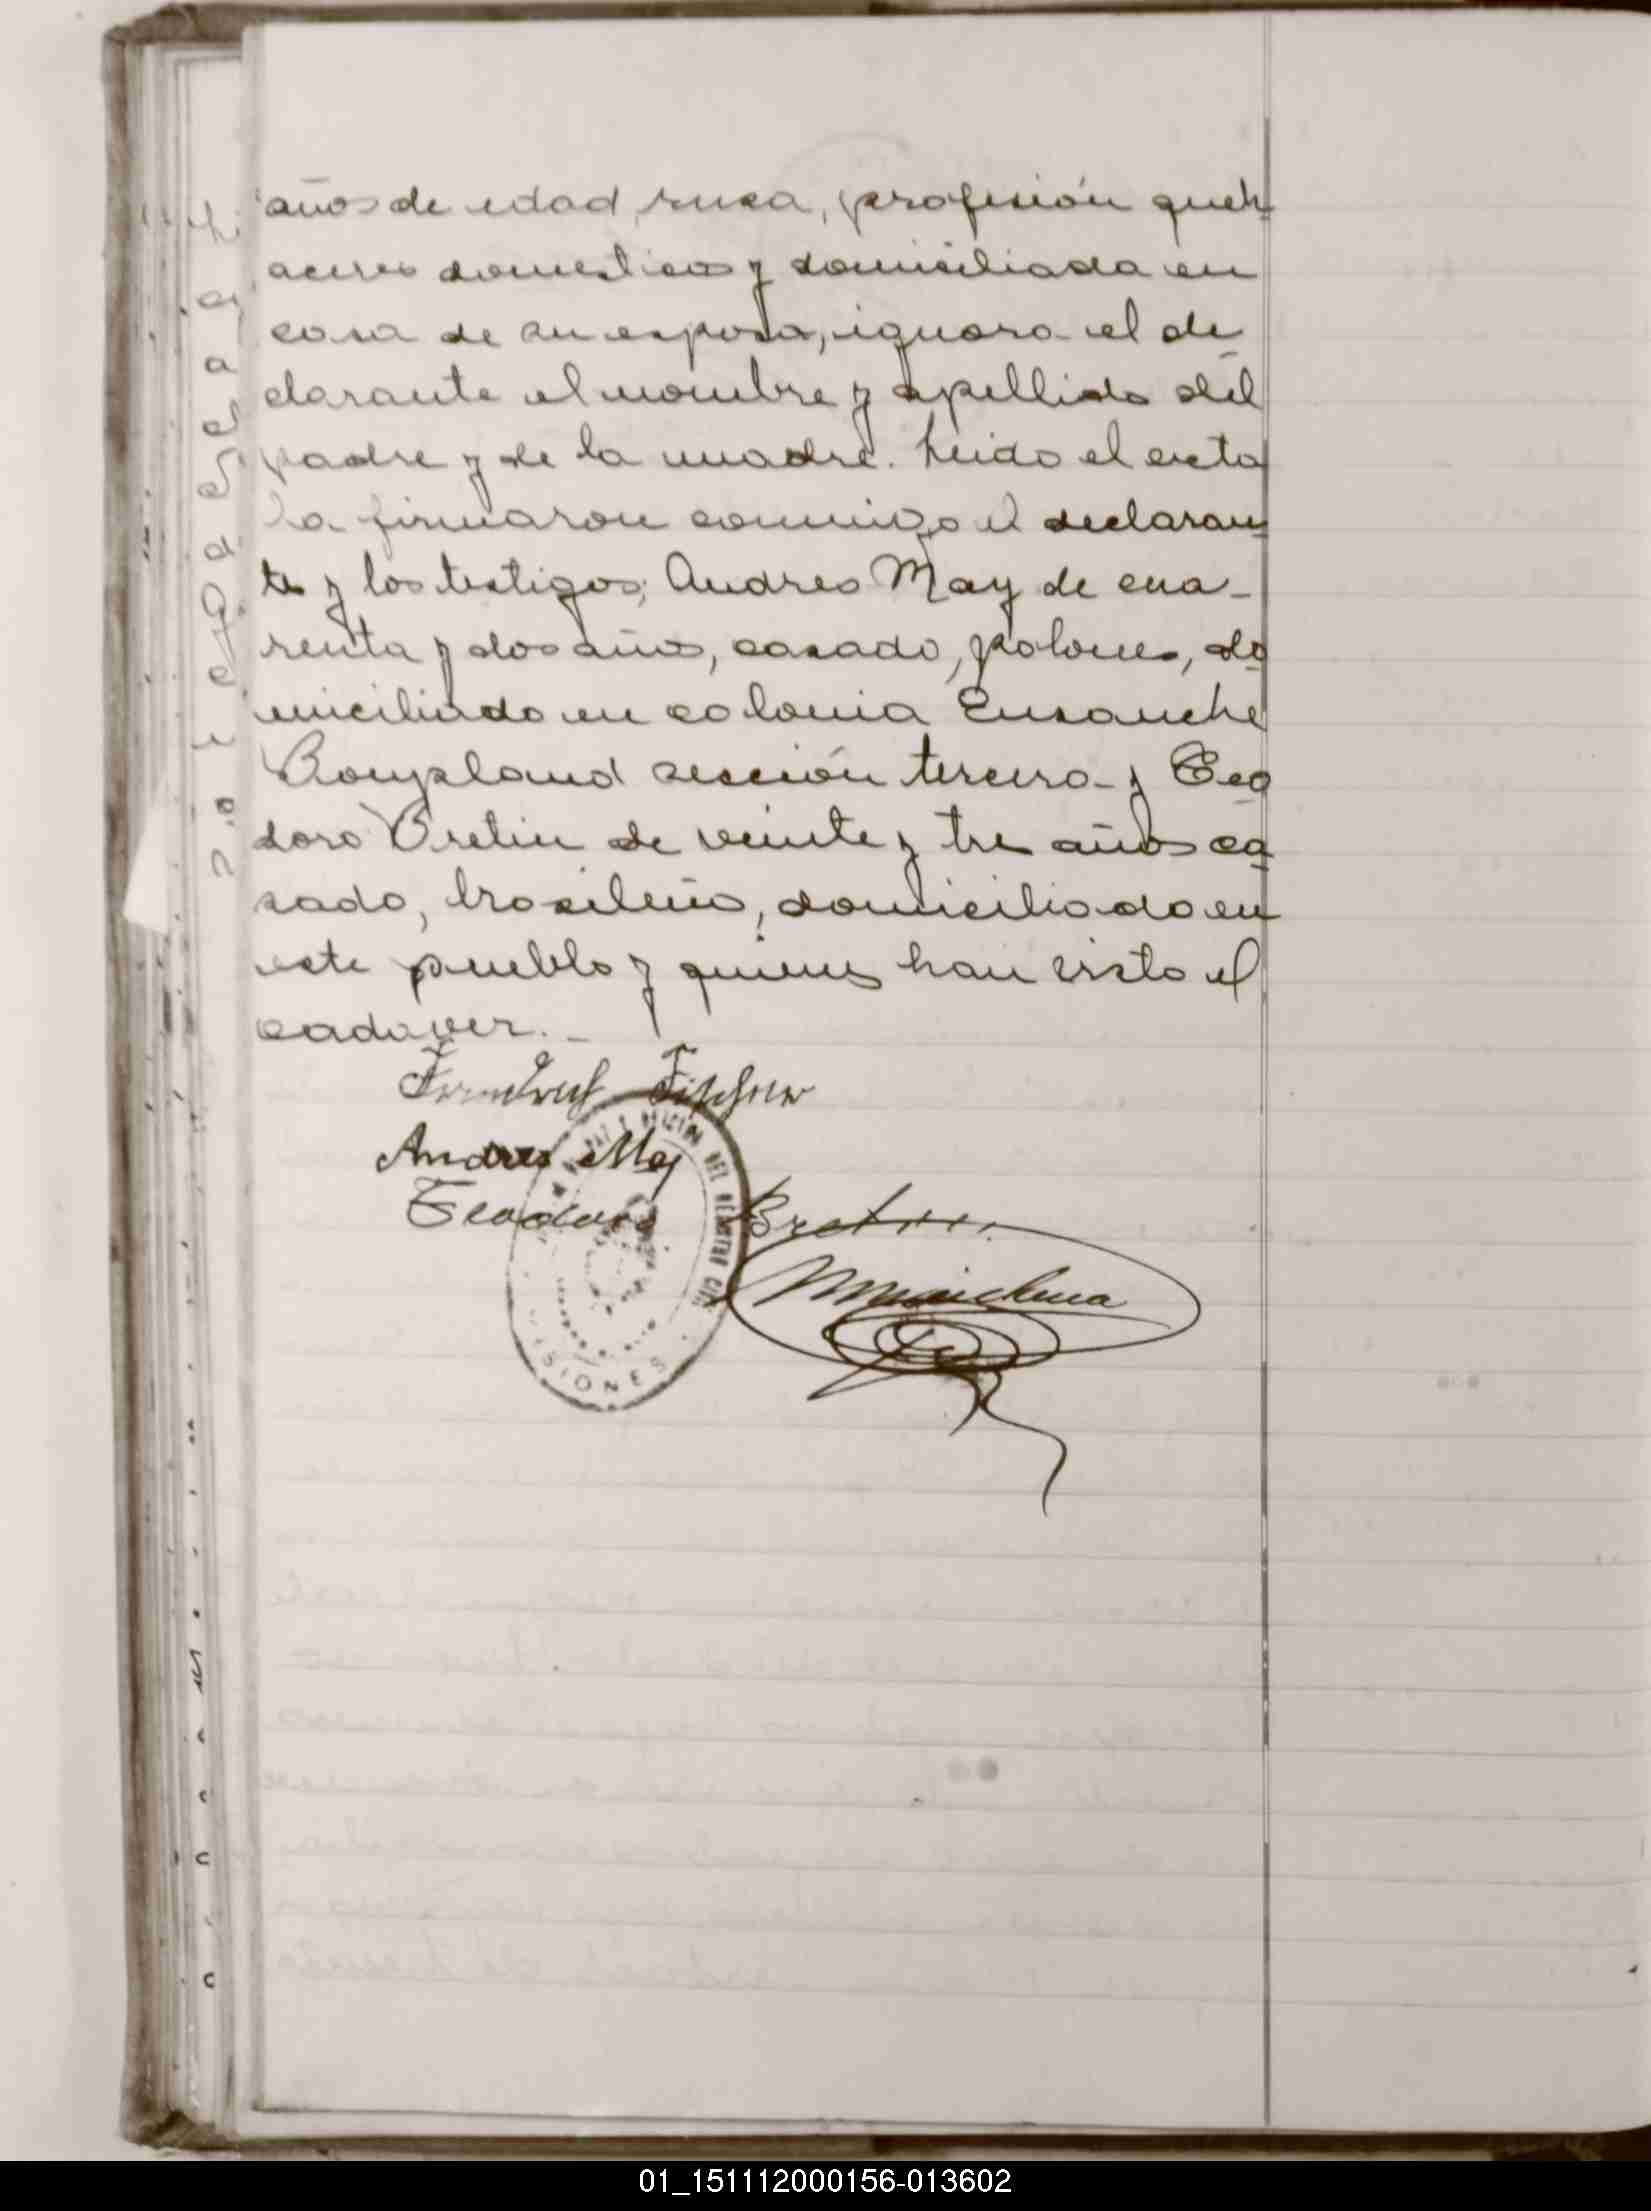 años de edad, rusa, profesión queh
aceres domesticos y domiciliada en
casa de su esposo, ignora el de
clarante el nombre y apellido del
padre y de la madre. Leido el acta
la firmaron conmigo el declaran
te y los testigos; Andres May de cua-
renta y dos años, casado, polones, do
miciliado en colonia Ensanche
Bonpland sección tercera y Teo
doro Bretin de veinte y tres años ca
sado, brasileño, domiciliado en
este pueblo y quienes han visto el
cadaver.
Friedrich Fischer
Andres May
Teodoro Bretin
DEL REGISTRO CIVIL
MISIONES
01_151112000156-013602